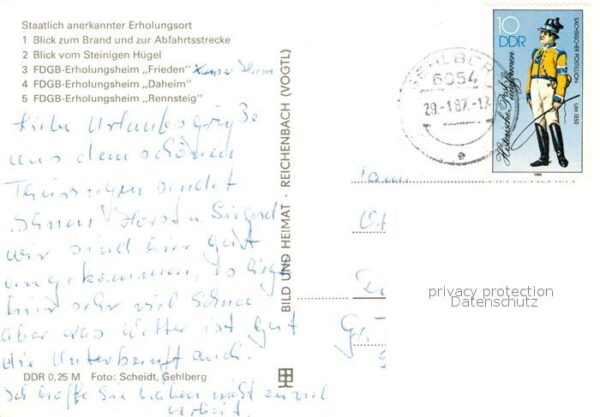 Staatlich anerkannter Erholungsort
1 Blick zum Brand und zur Abfahrtsstrecke
2 Blick vom Steinigen Hügel
3 FDGB-Erholungsheim „Frieden“ Heim
4 FDGB-Erholungsheim „Daheim“
5 FDGB-Erholungsheim „Rennsteig“
Liebe Urlaubsgrüße
aus dem schönen
Thüringen sendet
Ihnen Horst u. Siegrid
wir sind hier gut
angekommen, es liegt
hier sehr viel Schnee
aber das Wetter ist gut
die Unterkunft auch.
DDR 0,25 M Foto: Scheidt, Gehlberg
Ich hoffe Sie haben nicht zu viel
BILD UND HEIMAT · REICHENBACH (VOGTL)
GEHLBERG
6054
29.-1.87.-17
e
10
DDR
Historische Postuniformen
SÄCHSISCHER POSTILLION UM 1850
1986
Fam.
privacy protection
Datenschutz